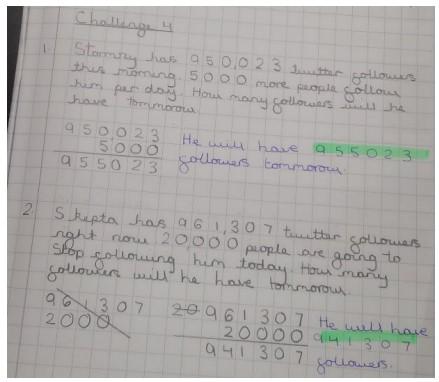 Challenge 4
1. Stormzy has 950,023 twitter followers
this morning. 5000 more people follow
him per day. How many followers will he
have tommorow
950,023
5000
955023
He will have 955023
followers tommorow.
2. Skepta has 961,307 twitter followers
right now 20,000 people are going to
stop following him today. How many
followers will he have tommorow.
961307
2000
20 961307
20000
941307
He will have
941307
followers.